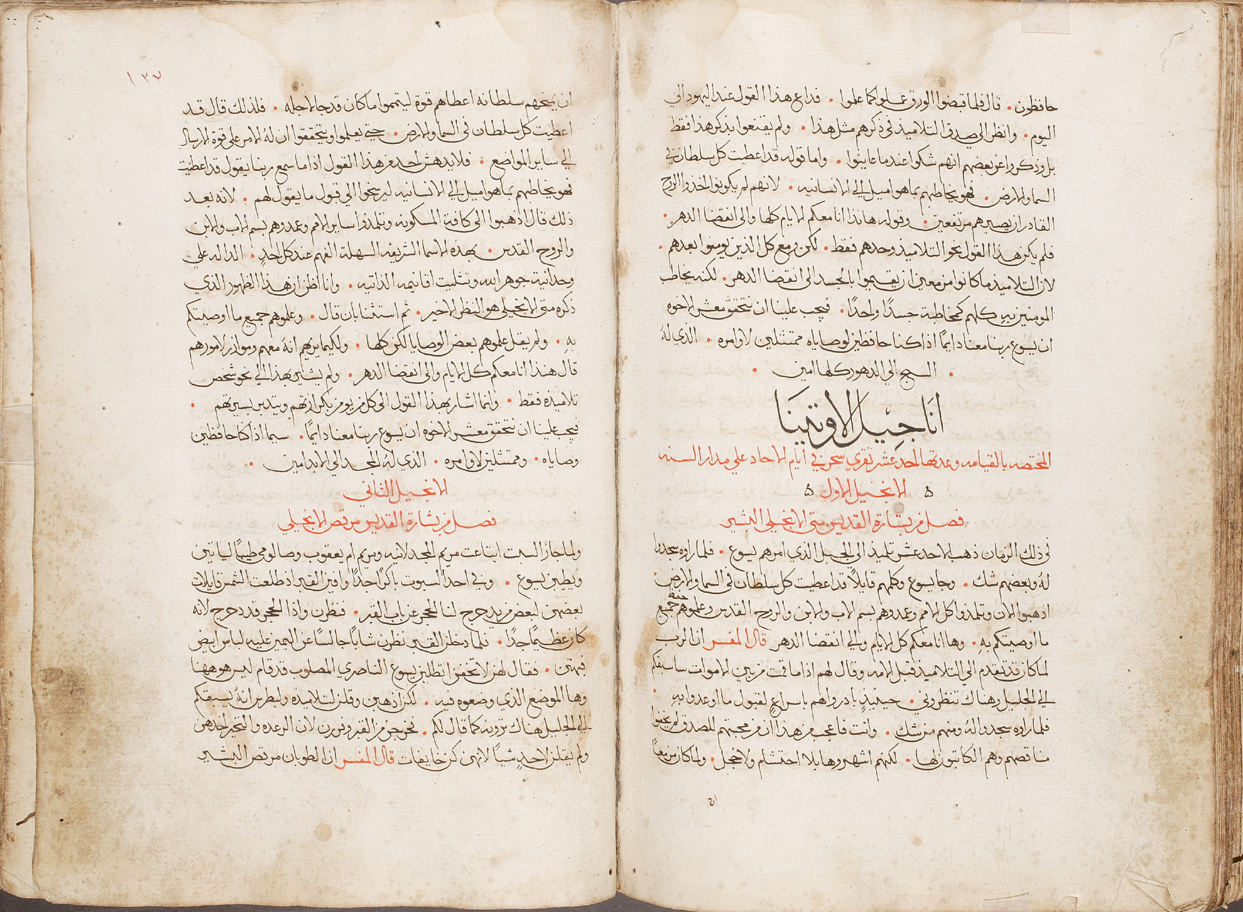 حافظون • قال فلما قبضوا الورق عملوا كما علموا • فذاع هذا القول عند اليهود الي
اليوم • وانظر الي صدق التلاميذ في ذكرهم مثل هذا • ولم يقنعوا بذكر هذا فقط
بل وذكروا عن بعضهم انهم شكوا عند ما عاينوا • واما قوله قد اعطيت كل سلطان في
السما والارض • فهو يخاطبهم بما هو اميل الي الانسانيه • لانهم لم يكونوا اخذوا الروح
القادر ان يصيرهم مرتفعين • وقوله هانذا انا معكم الايام كلها والي انقضا الدهر •
فلم يكن هذا القول نحو التلاميذ وحدهم فقط • لكن ومع كل الذين يومنوا بعدهم •
لان التلاميذ ما كانوا مزمعين ان يقيموا بالجسد الي انقضا الدهر • لكنه يخاطب
المومنين به كلهم كمخاطبة جسدًا واحدًا • فيجب علينا ان نتحقق معشر الاخوه
ان يسوع ربنا معنا دايمًا اذا كنا حافظين لوصاياه ممتثلين لاوامره • الذي له
• السبح الي الدهور كلها امين •
انَاجِيْل الاوثينَا
المختصه بالقيامه وعدتها احد عشر تقري سحر في ايام الاحاد علي مدار السنه
الانجيل الاول
فصل من بشارة القديس متي الانجيلي البشير
في ذلك الزمان ذهب الاحد عشر تلميذ الي الجبل الذي امرهم يسوع • فلما راوه سجدوا
له وبعضهم شك • وجا يسوع وكلمهم قايلاً قد اعطيت كل سلطان في السما والارض •
اذهبوا الان وتلمذوا كل الامم وعمدوهم بسم الاب والابن والروح القدس وعلموهم حفظ جميع
ما اوصيتكم به • وها انا معكم كل الايام والي انقضا الدهر قال المفسر ان الرب
لما كان قد تقدم الي التلاميذ قبل الامه وقال لهم اذا ما قمت من بين الاموات ساسبقكم
الي الجليل وهناك تنظروني • حينيذٍ بادروا هم باسراع لقبول ما اوعدوا به •
فلما راوه سجدوا له ومنهم من شك • وانت فاعجب من هذا انفر محبتهم للصدق لم يخفوا
مناقصهم وهم الكاتبون لها • لكنهم اشهروها بلا احتشام ولا خجل • ولما كان مزمعًا
١٣٧
ان يمنحهم سلطانه اعطاهم قوة ليتمموا ما كان قد جا لاجله • فلذلك قال قد
اعطيت كل سلطان في السما والارض • حتي يعلموا ويتحققوا ان له الامر علي قوة الارسال
الي ساير المواضع • فلا يدهش احد من هذا القول اذا ما سمع ربنا يقول قد اعطيت
فهو يخاطبهم بما هو اميل الي الانسانيه ليرسخوا الي قبول ما يقول لهم • لانه بعد
ذلك قال اذهبوا الي كافة المسكونه وتلمذوا ساير الامم وعمدوهم بسم الاب والابن
والروح القدس • بهذه الاسما الشريفه السهلة الفهم عند كل احدٍ • الداله علي
وحدانية جوهر الله وتثليث اقانيمه الذاتيه • وانا اظن ان هذا الظهور الذي
ذكره متي الانجيلي هو النظر الاخير • ثم استثنا بان قال • وعلموهم جميع ما اوصيتكم
به • ولم يقل علموهم بعض الوصايا لكن كلها • ولكيما يريهم انه معهم وموازر لامورهم
قال هنذا انا معكم كل الايام والي انقضا الدهر • ولم يشير بهذا الي نحو شخص
تلاميذه فقط • وانما اشار بهذا القول الي كل من يومن بكرازتهم ويتدبر بسيرتهم •
فيجب علينا ان نتحقق معشر الاخوه ان يسوع ربنا معنا دايمًا • سيما اذا كنا حافظين
وصاياه • وممتثلين لاوامره • الذي له المجد الي الابد امين ••
الانجيل الثاني
فصل من بشارة القديس مرقص الانجيلي
ولما جاز السبت ابتاعت مريم المجدلانيه ومريم ام يعقوب وصالومي طيبًا لياتين
ويطيبن يسوع • وفي احد السبوت باكرًا جدًا وافين القبر اذ طلعت الشمس قايلات
بعضهن لبعض من يدحرج لنا الحجر عن باب القبر • فنظرن واذا الحجر قد دحرج لانه
كان عظيمًا جدًا • فلما دخلن القبر نظرن شابًا جالسًا عن اليمين عليه لباس ابيض
فبهتن • فقال لهن لا تخفن اتطلبن يسوع الناصري المصلوب قد قام ليس هو ههنا
وها الموضع الذي وضعوه فيه • لكن اذهبن وقلن لتلاميذه ولبطرس انه يسبقكم
الي الجليل هناك ترونه كما قال لكم • فخرجن من القبر وفررن لان الرعده والتحير اخذهن
ولم يقلن لاحدٍ شيًا لانهن كن خايفات قال المفسر ان الطوبان مرقص البشير